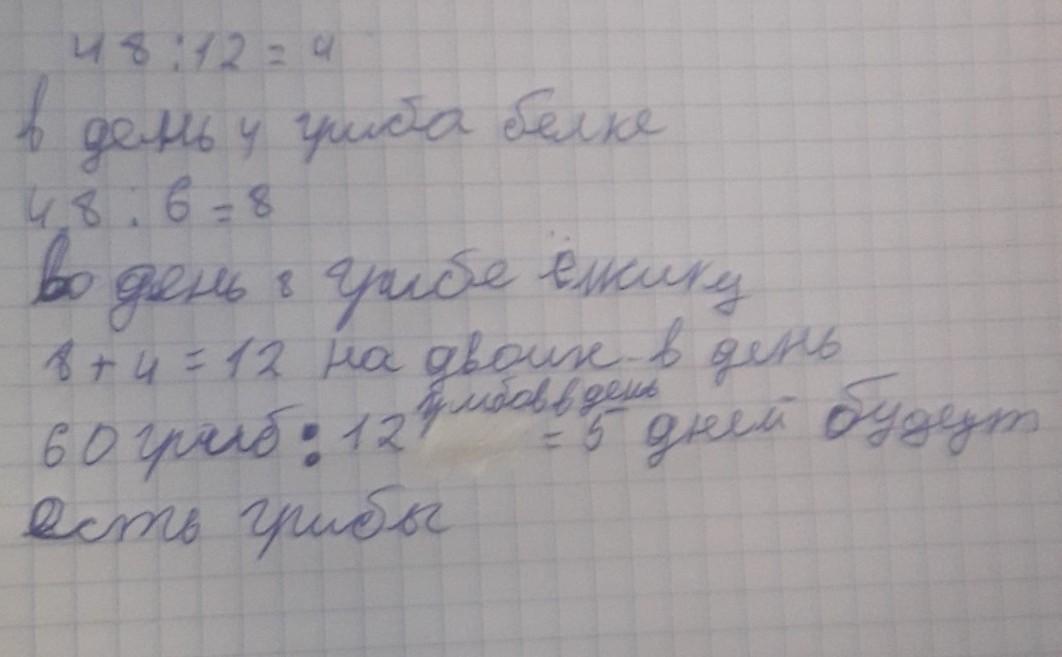 48:12=4
в день 4 гриба белке
48:6=8
во день 8 грибе ёжику
8+4=12 на двоих в день
грибов в день
60 гриб : 12 = 5 дней будут
есть грибы